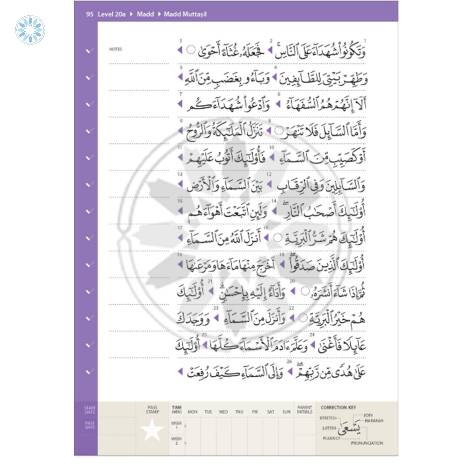 95 Level 20a ▶ Madd ▶ Madd Muttaṣil
NOTES
وَتَكُونُوا۟ شُهَدَآءَ عَلَى ٱلنَّاسِ ۚ فَجَعَلَهُۥ غُثَآءً أَحْوَىٰ
وَطَهِّرْ بَيْتِىَ لِلطَّآئِفِينَ وَبَآءُو بِغَضَبٍ مِّنَ ٱللَّهِ
أَلَآ إِنَّهُمْ هُمُ ٱلسُّفَهَآءُ وَٱدْعُوا۟ شُهَدَآءَكُم
وَأَمَّا ٱلسَّآئِلَ فَلَا تَنْهَرْ تَنَزَّلُ ٱلْمَلَـٰٓئِكَةُ وَٱلرُّوحُ
أَوْ كَصَيِّبٍ مِّنَ ٱلسَّمَآءِ فَأُو۟لَـٰٓئِكَ أَتُوبُ عَلَيْهِمْ
وَٱلسَّآئِلِينَ وَفِى ٱلرِّقَابِ بَيْنَ ٱلسَّمَآءِ وَٱلْأَرْضِ
أُو۟لَـٰٓئِكَ أَصْحَـٰبُ ٱلنَّارِ ۖ وَلَئِنِ ٱتَّبَعْتَ أَهْوَآءَهُم
أُو۟لَـٰٓئِكَ هُمْ شَرُّ ٱلْبَرِيَّةِ أَنزَلَ ٱللَّهُ مِنَ ٱلسَّمَآءِ
أُو۟لَـٰٓئِكَ ٱلَّذِينَ صَدَقُوا۟ ۖ أَخْرَجَ مِنْهَا مَآءَهَا وَمَرْعَىٰهَا
ثُمَّ إِذَا شَآءَ أَنشَرَهُۥ وَأَدَآءٌ إِلَيْهِ بِإِحْسَـٰنٍ ۗ أُو۟لَـٰٓئِكَ
هُمْ خَيْرُ ٱلْبَرِيَّةِ وَأَنزَلَ مِنَ ٱلسَّمَآءِ وَوَجَدَكَ
عَآئِلًا فَأَغْنَىٰ وَعَلَّمَ ءَادَمَ ٱلْأَسْمَآءَ كُلَّهَا أُو۟لَـٰٓئِكَ
عَلَىٰ هُدًى مِّن رَّبِّهِمْ ۖ وَإِلَى ٱلسَّمَآءِ كَيْفَ رُفِعَتْ
START DATE
PAGE DATE
PASS STAMP
TIME (MIN) MON TUE WED THU FRI SAT SUN PARENT INITIALS
WEEK 1
WEEK 2
CORRECTION KEY
STRETCH
JOIN
HARAKAH
LETTER
FLUENCY
PRONUNCIATION
يَسْعَىٰ